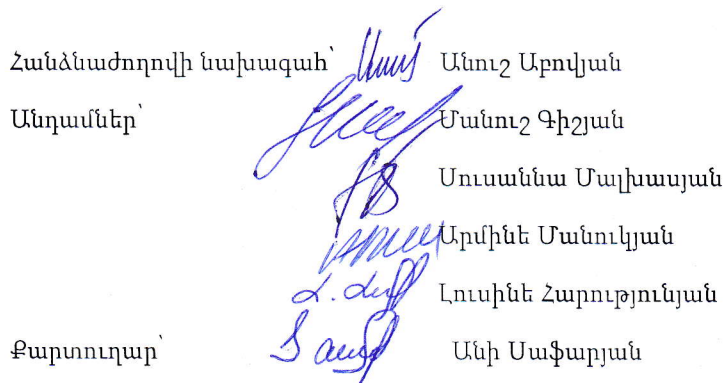 Հանձնաժողովի նախագահ՝ Անուշ Աբովյան
Անդամներ՝ Մանուշ Գիշյան
Սուսաննա Մալխասյան
Արմինե Մանուկյան
Լուսինե Հարությունյան
Քարտուղար՝ Անի Սաֆարյան